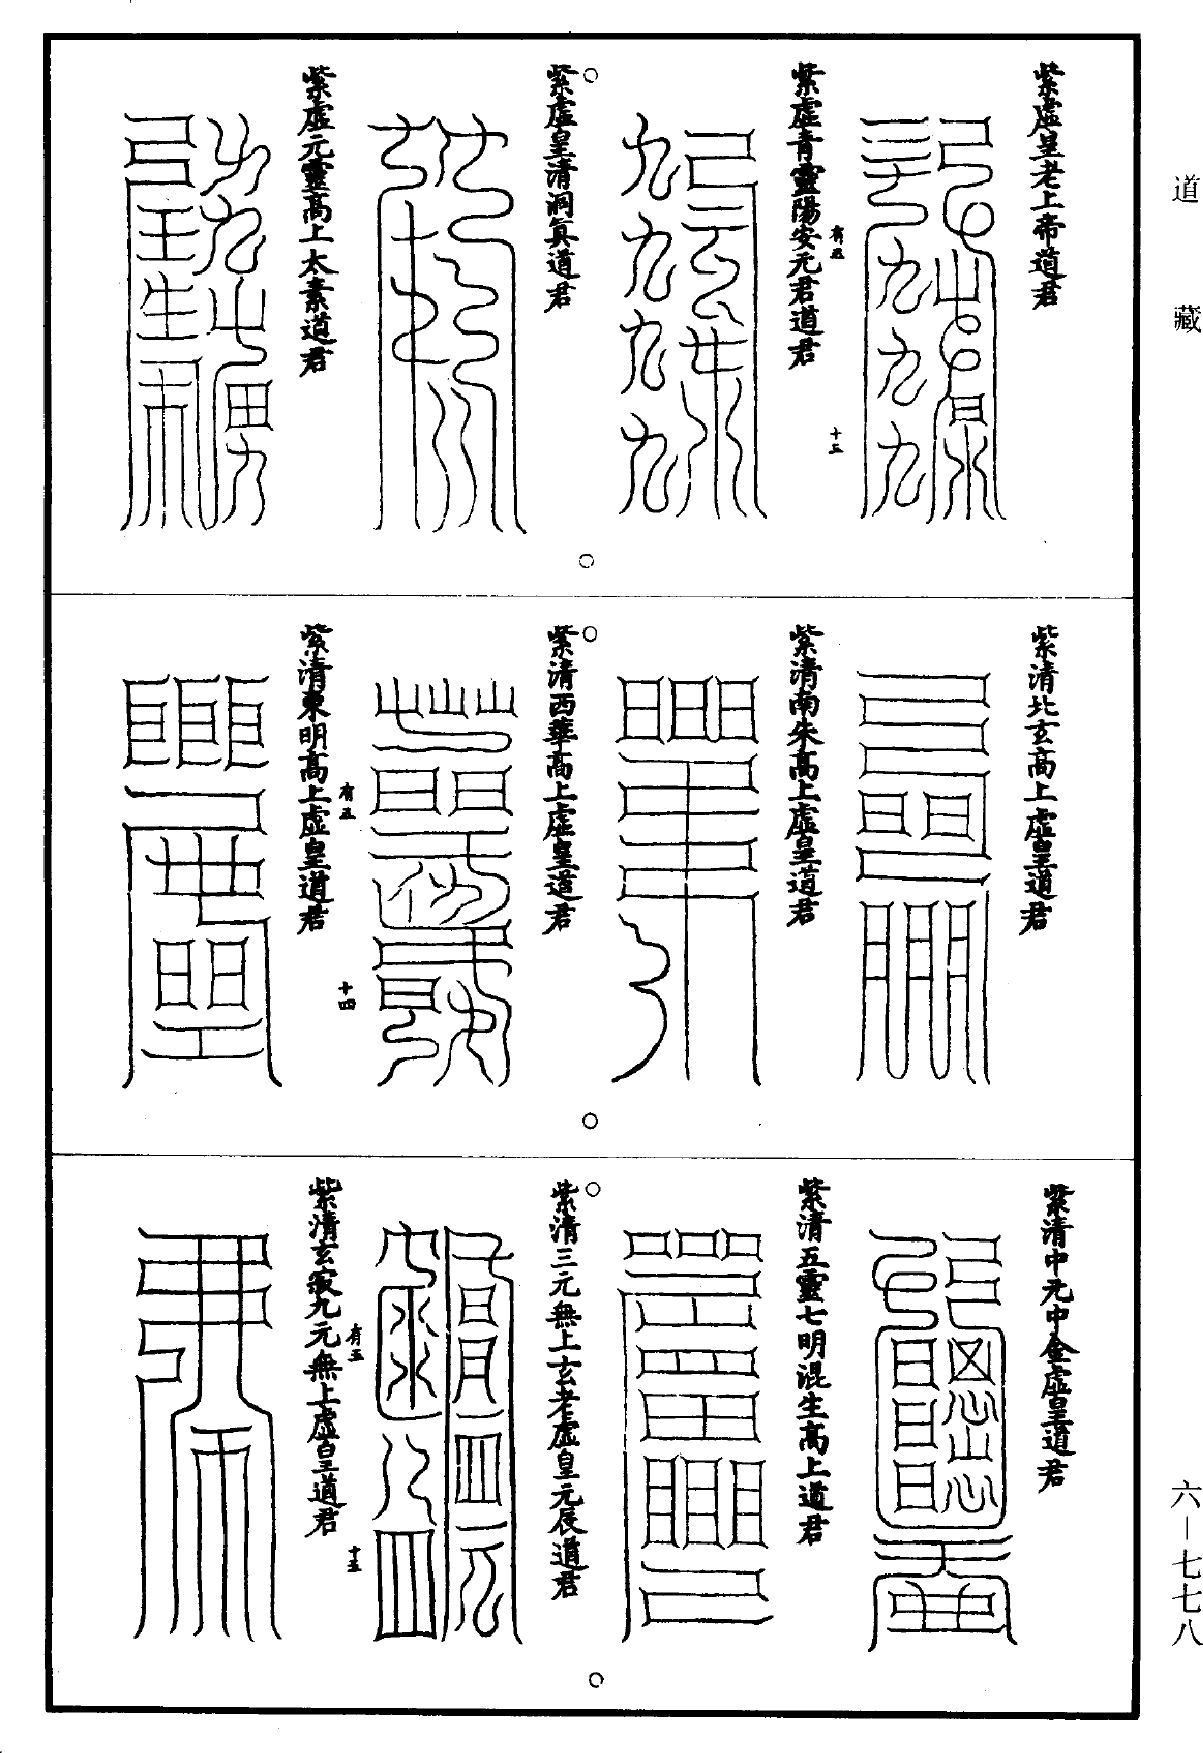 道藏
紫虛皇老上帝道君
有五
十三
紫虛青靈陽安元君道君
紫虛皇清洞真道君
紫虛元靈高上太素道君
紫清北玄高上虛皇道君
紫清南朱高上虛皇道君
紫清西華高上虛皇道君
有五
十四
紫清東明高上虛皇道君
紫清中元中金虛皇道君
紫清五靈七明混生高上道君
紫清三元無上玄老虛皇元辰道君
有五
十五
紫清玄寂九元無上虛皇道君
六—七七八